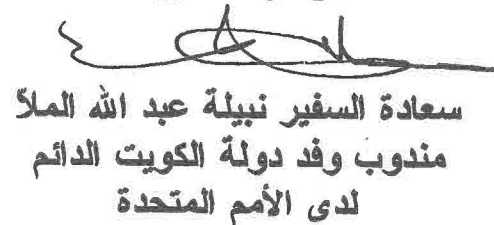 سعادة السفير نبيلة عبد الله الملاّ
مندوب وفد دولة الكويت الدائم
لدى الأمم المتحدة